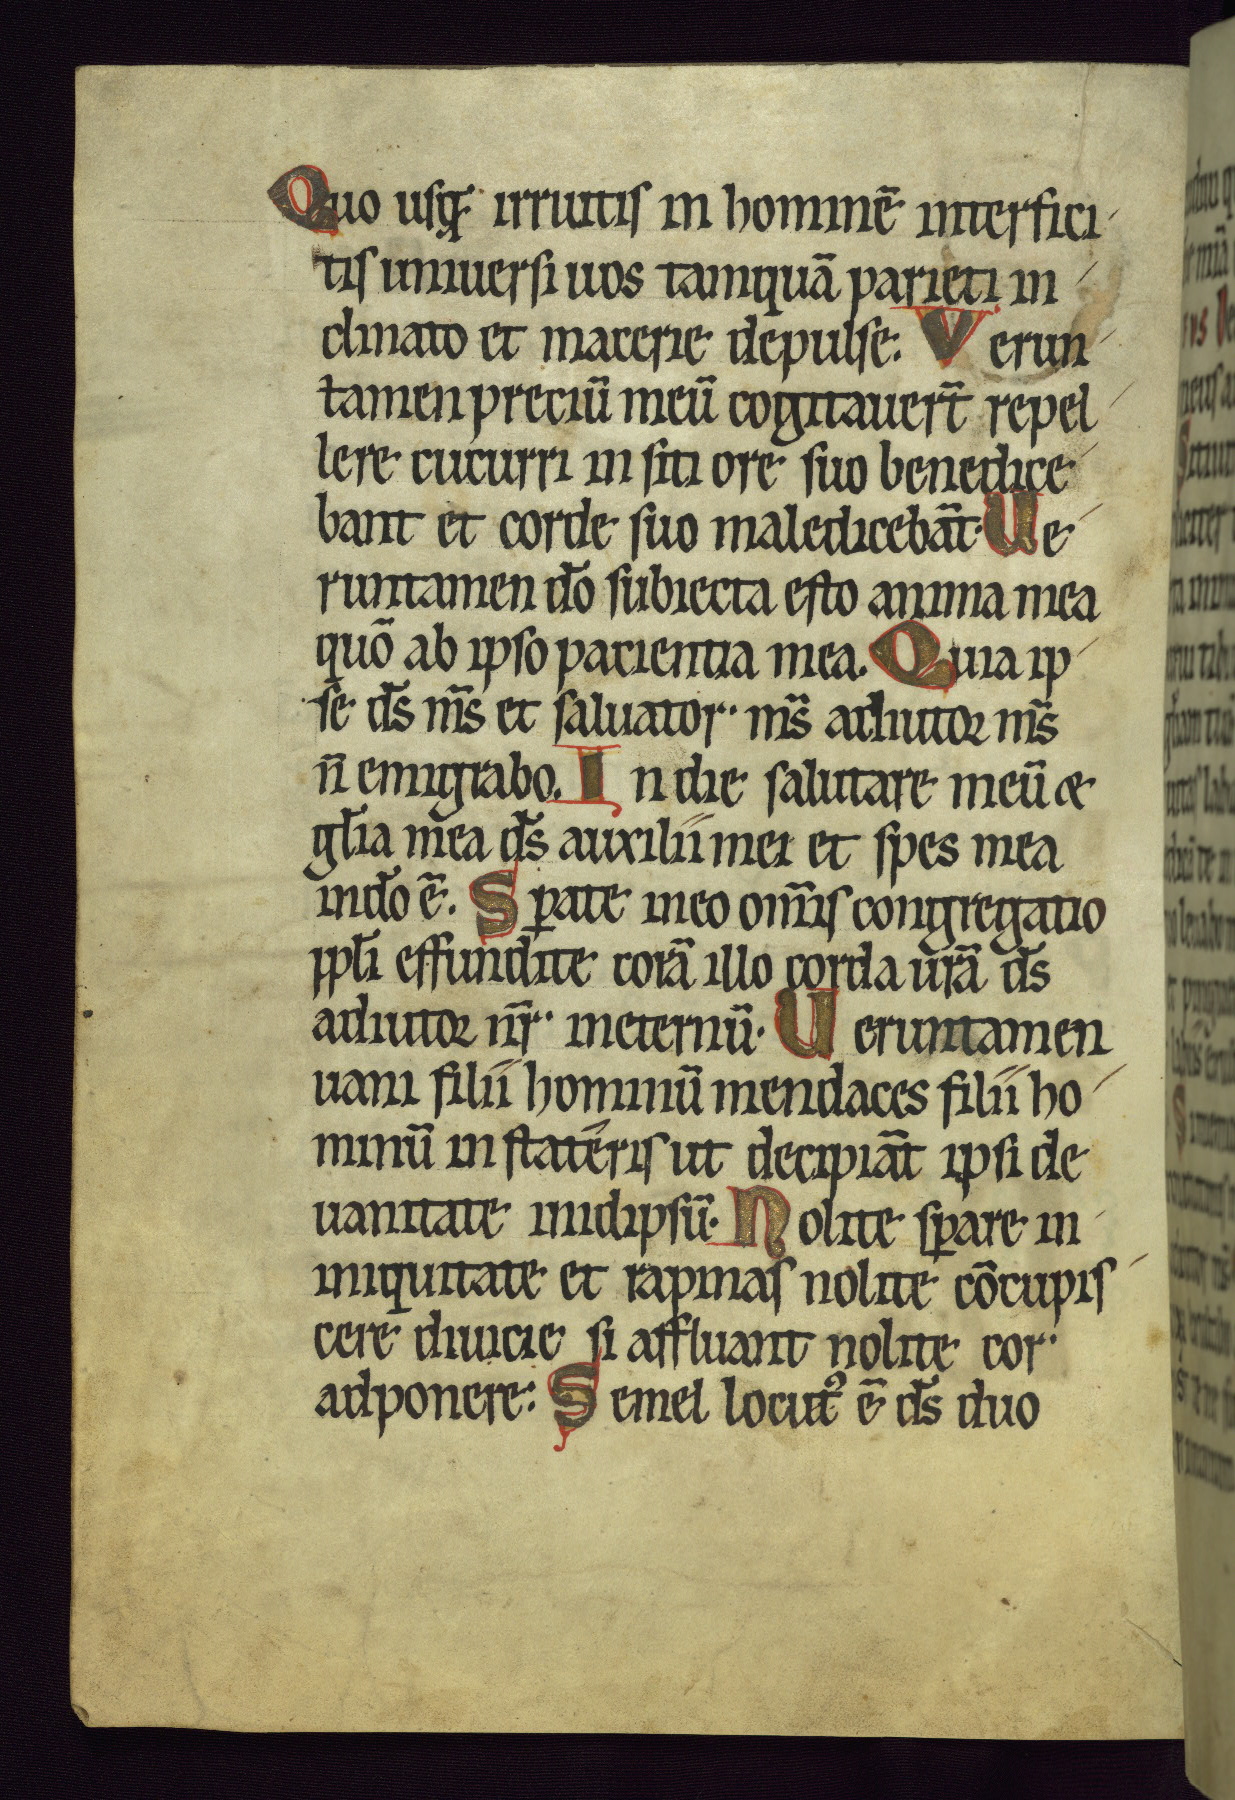 Quo usq; irruitis in hominē interfici
tis uniuersi uos tamquā parieti in
clinato et macerie depulse. Verun
tamen preciū meū cogitauert̄ repel
lere cucurri in siti ore suo benedice
bant et corde suo maledicebāt. Ue
runtamen dō subiecta esto anima mea
quō ab ipso pacientia mea. Quia ip
se d̄s m̄s et saluator m̄s adiutor m̄s
n̄ emigrabo. In die salutare meū &
gl̄ia mea d̄s auxilii mei et spes mea
in dō ē. Sꝑate in eo om̄is congregatio
ppl̄i effundite corā illo corda ur̄a d̄s
adiutor nr̄ in eternū. Ueruntamen
uani filii hominū mendaces filii ho
minū in stateris ut decipiāt ipsi de
uanitate in idipsū. Nolite sꝑare in
iniquitate et rapinas nolite cōcupis
cere diuicie si affluant nolite cor
adponere. Semel locutꝰ ē d̄s duo